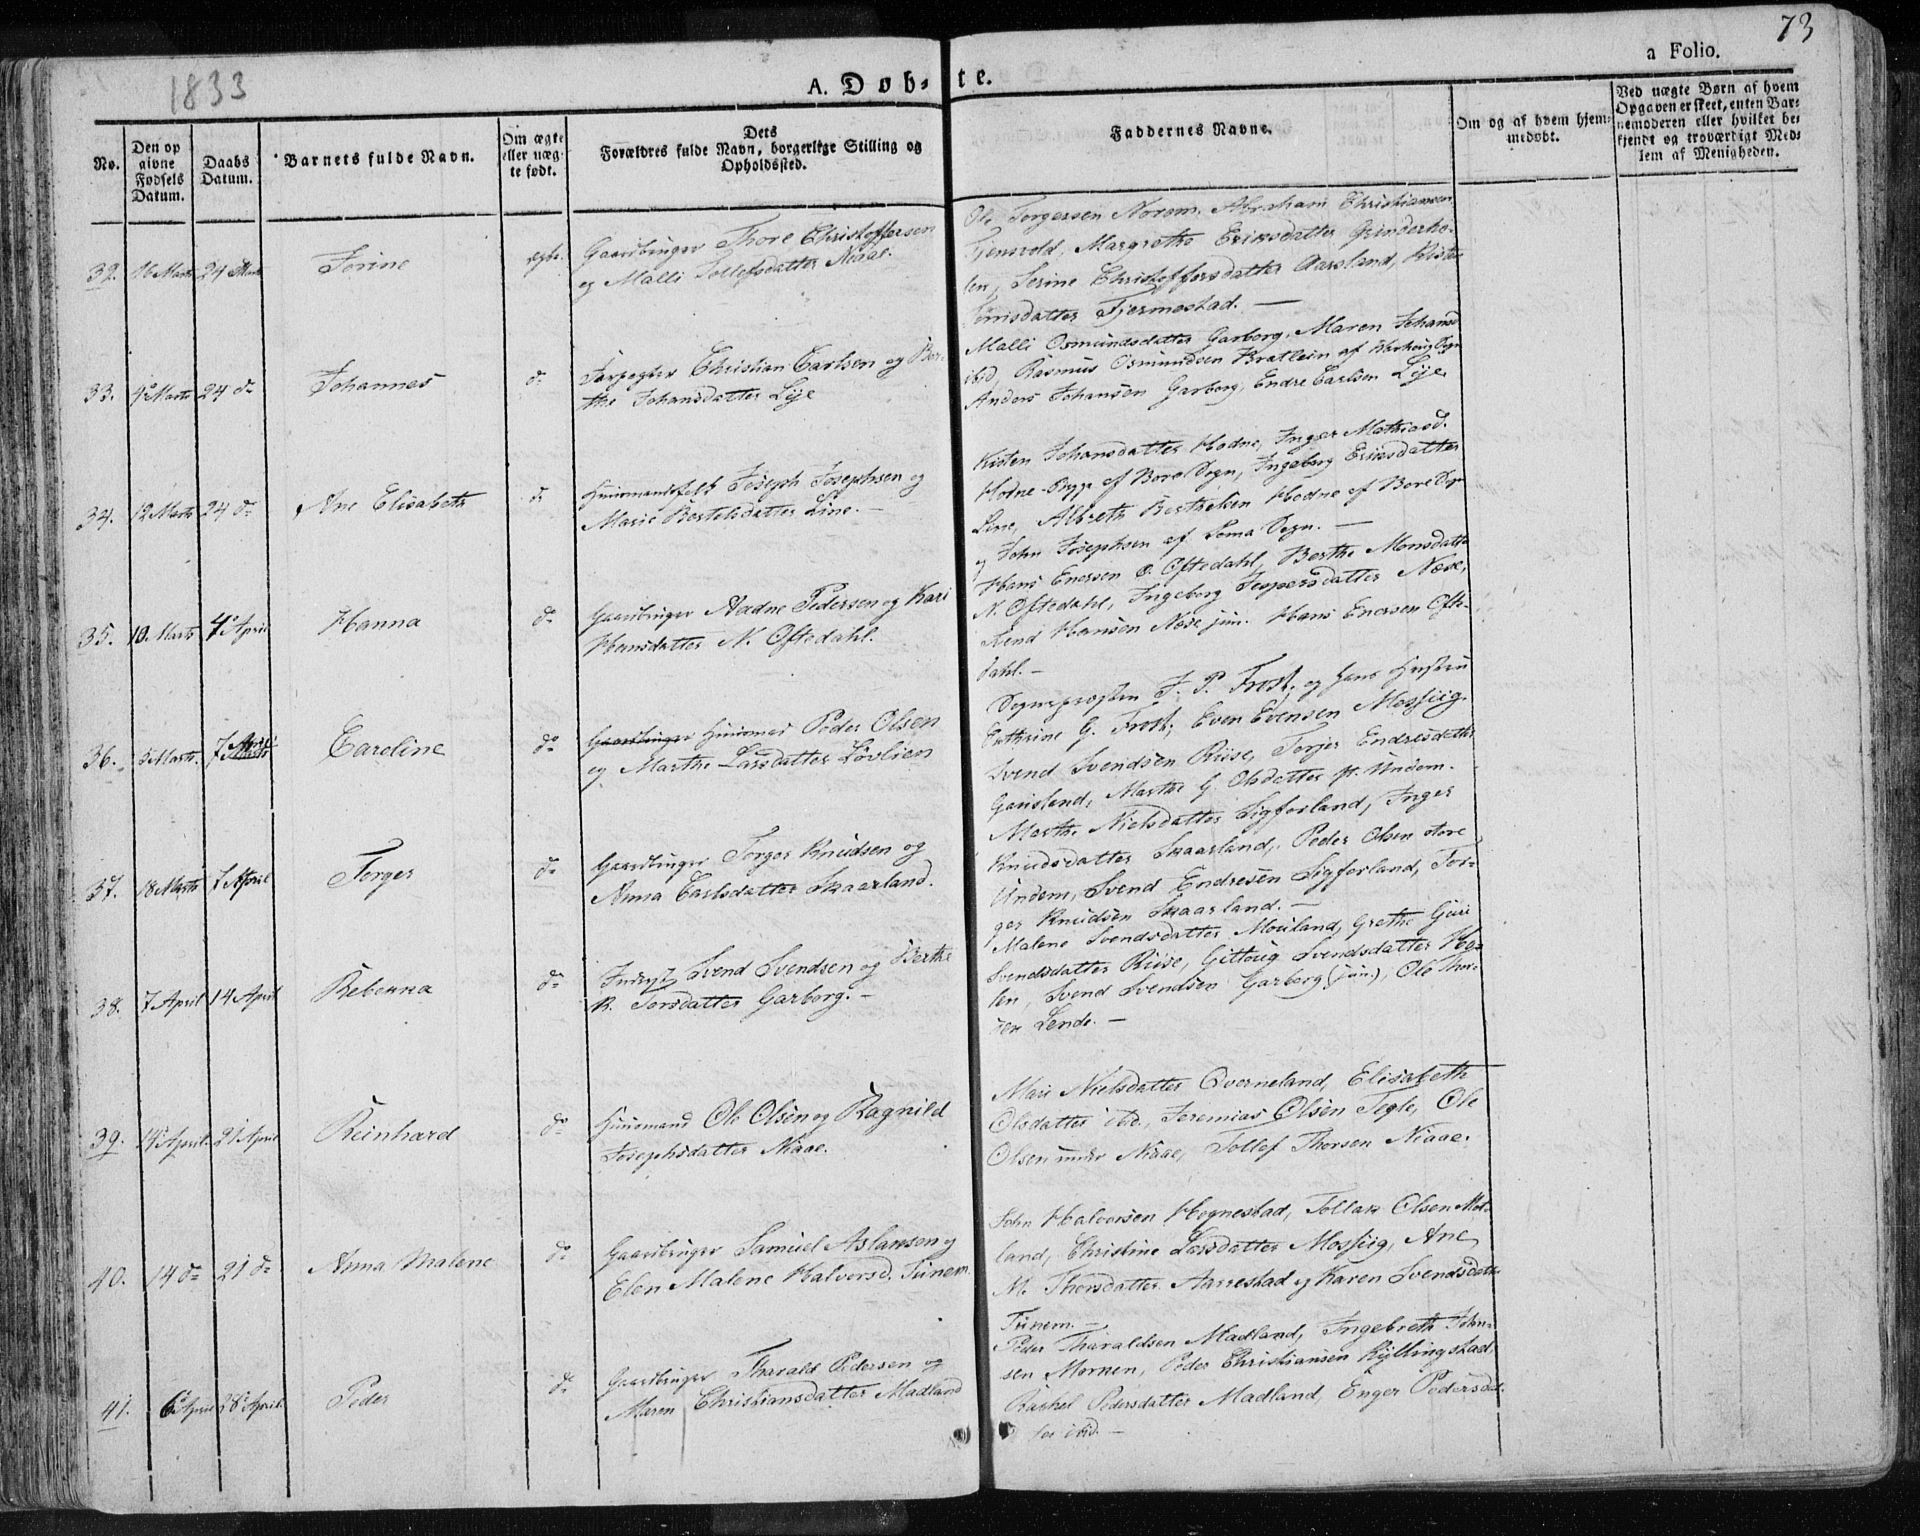 73
a Folio.
1833
A. Døb-te.
No.
Den op
givne
Fødsels
Datum.
Daabs
Datum.
Barnets fulde Navn.
Om ægte
eller uæg-
te født.
Dets
Forældres fulde Navn, borgerlige Stilling og
Opholdssted.
Faddernes Navne.
Om og af hvem hjem-
medøbt.
Ved uægte Børn af hvem
Opgaven er skeet, enten Bar-
nemoderen eller hvilket be-
kjendt og troværdigt Med-
lem af Menigheden.
32. 16 Marts 24 Marts
Serine
ægte.
Gaardbruger Thore Christoffersen
og Malli Tollefsdatter Niaae.
Ole Torgersen Norem, Abraham Christiansen
Margrethe Eriksdatter
Serine Christoffersdatter Aarsland,
Tjermestad. —
33. 9 Marts 24 do
Johannes
do
Christian Carlsen og Ber-
the Johansdatter Lye
Malli Osmundsdatter Garborg, Maren Johansd.
ibid, Rasmus Osmundsen Bratlein af
Anders Johansen Garborg, Endre Carlsen Lye
34. 12 Marts 24 do
Ane Elisabeth
do
Huusmandsfolk Joseph Josephsen og
Marie Bertelsdatter Line. —
Kisten Johansdatter Hodne, Inger Mathiasd.
Hodne af Bore Sogn, Ingeborg Eriksdatter
Line, Albreth Berthelsen Hodne af Bore Sogn
og John Josephsen af Soma Sogn. —
35. 10. Marts 4 April
Hanna
do
Gaardbruger Aadne Pedersen og Kari
Hansdatter N. Oftedahl.
Hans Enersen O. Oftedahl, Berthe Monsdatter
N. Oftedahl, Ingeborg Jespersdatter Næse,
Hansen Næse jun. Hans Enersen Ofte-
dahl. —
36. 5 Marts. 7 April
Caroline
do
Gaardbruger Huusmand Peder Olsen
og Marthe Larsdatter Løvlien
Sognepræsten J. P. Frost, og Hans Hustru
Cathrine G. Frost; Even Evensen Mossiig.
Svend Svendsen Riise, Torjer Endresdatter
Gausland, Marthe G. Olsdatter Undem.
37. 18 Marts 7 April
Torger
do
Gaardbruger Torger Knudsen og
Anna Carlsdatter Skaarland.
Marthe Nielsdatter Sigforland, Inger
Knudsdatter Skaarland, Peder Olsen store
Undem, Svend Endresen Sigforland, Tor-
ger Knudsen Skaarland. —
38. 7 April 14 April
Rebenna
do
Svend Svendsen og Berthe
K. Torsdatter Garborg. —
Malene Svendsdatter Mouland, Grethe Guri
Svendsdatter Riise, Svendsdatter Hog-
len, Svend Svendsen Garborg (jun.), Ole
Lende. —
39. 14 April. 21 April
Reinhard
do
Huusmand Ole Olsen og Ragnild
Josephsdatter Niaae.
Mari Nielsdatter Qverneland, Elisabeth
Olsdatter ibid., Jeremias Olsen Tegle, Ole
Olsen under Niaae, Tollef Thorsen Niaae.
40. 14 do 21 do
Anna Malene
do
Gaardbruger Samuel Aslaksen og
Elen Malene Halvorsd. Tunem.
John Halvorsen Hognestad, Tollak Olsen Mel-
land, Christine Larsdatter Mossiig, Ane
M. Thorsdatter Aarrestad og Karen Svendsdatter
Tunem. —
41. 6 April 28 April.
Peder
do
Gaardbruger Tharald Pedersen og
Maren Christiansdatter Madland
Peder Tharaldsen Madland, Ingebreth John-
sen Peder Christiansen Kyllingstad
Rachel Pedersdatter Madland, Enger Pedersdat-
ter ibid. —